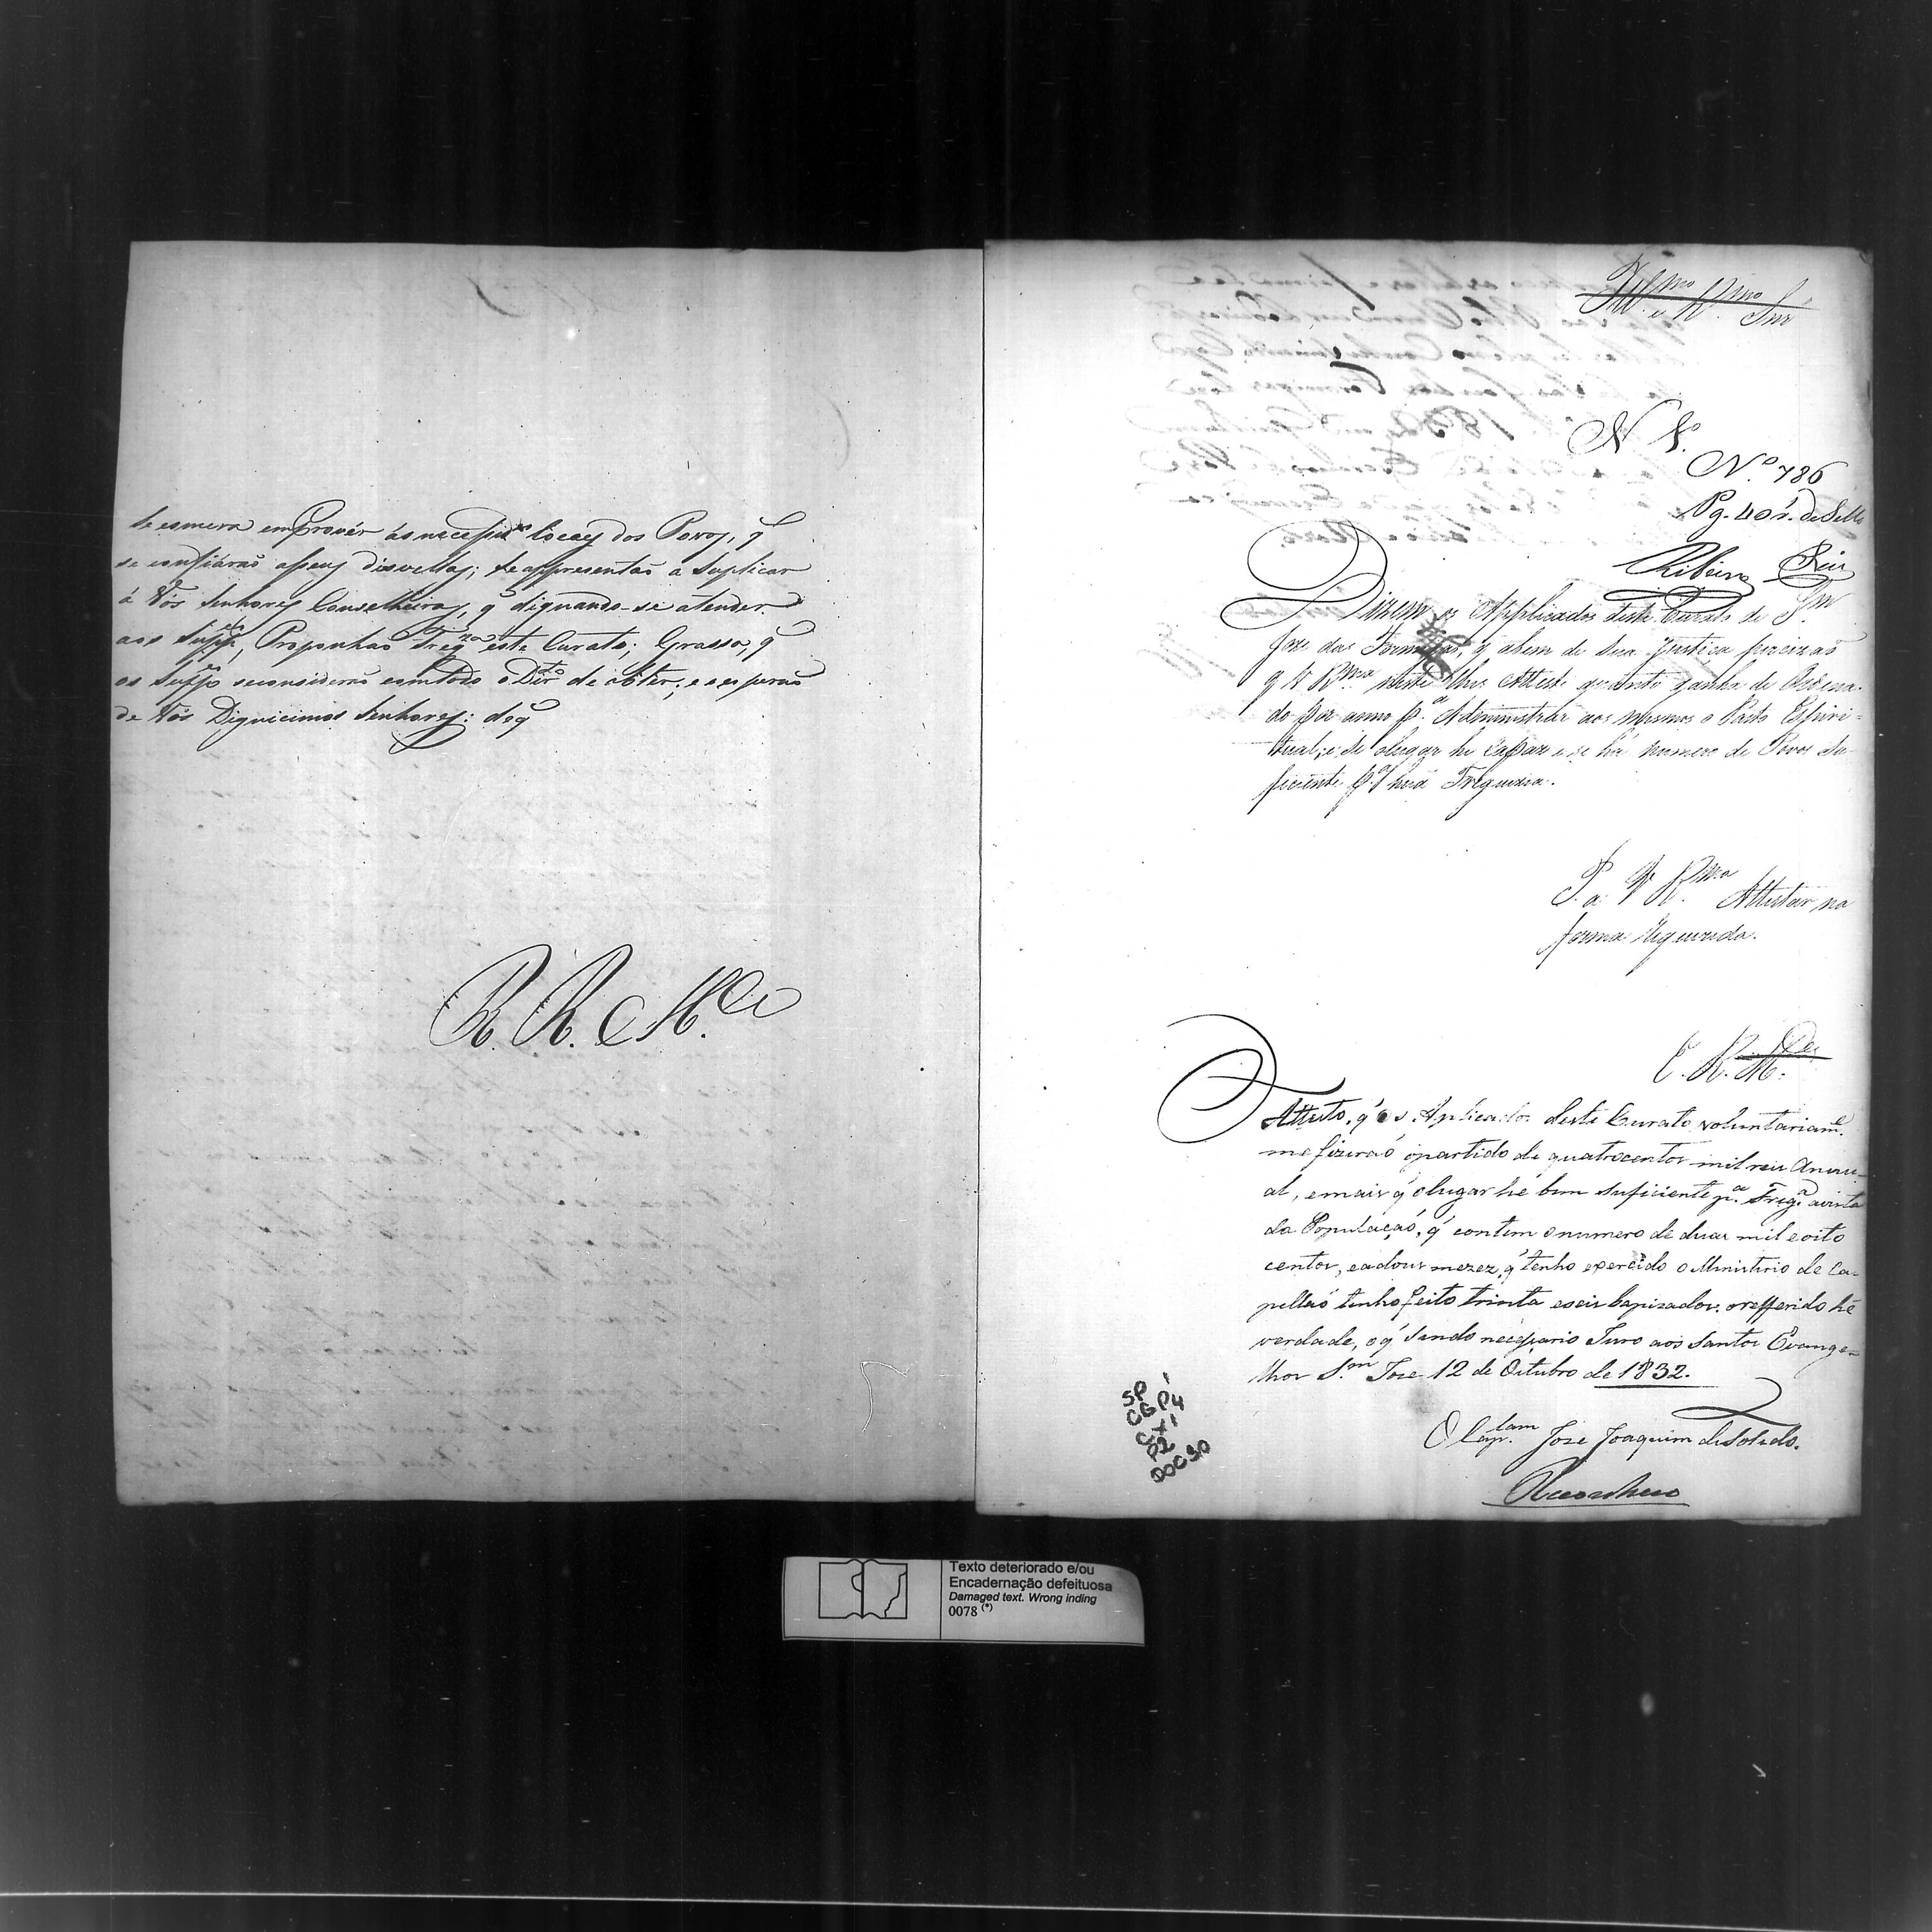 se esmera em Prover ás necessid.es locaes dos Povos, q
se confiárão a seus disvellos; se appresentão a suplicar
á Vós Senhores Conselheiros, q dignando-se atender
aos Supp.es, Proponhão Freg.za este Curato; Grassa, q
os Supp.es se considerão com todo o Dir.to de obter; e esperão
de Vós Dignicimos Senhores: deq
R. R. e M.ce
Ill.mo e R.mo Snr
N 1.º
N.º 786
Pg. 40 r.s de Sello
Ribeiro
Dizem os Applicados deste Curato de S.m
Joze das Formigas, q abem de sua Justiça precizão
q V R.ma neste lhes Atteste quanto ganha de Ordena-
do por anno p.a Administrar aos mesmos o Pasto Espiri-
tual; e se o lugar he capaz e se há numero de Povos su-
ficiente p.a huã Freguezia.
P. a V R.ma Attestar na
forma requerida.
E. R. M.ce
Attesto, q os Aplicados deste Curato voluntariam.e
me fizerão o partido de quatrocentos mil reis Annu-
al, e mais q o lugar hé bem suficiente p.a Freg.a a vista
da População, q contem o numero de duas mil e oito
centos, e a dous mezes, q tenho exercido o Ministerio de Ca-
pellão tenho feito trinta e seis bapizados. o refferido hé
verdade, o q sendo necessario Juro aos Santos Evange-
lhos S.m Joze 12 de Outubro de 1832.
O Cap.lam Joze Joaquim de Toledo.
Reconheço
SP 1
CGP4
CX1
P2
DOC 30
Texto deteriorado e/ou
Encadernação defeituosa
Damaged text. Wrong inding
0078 (*)